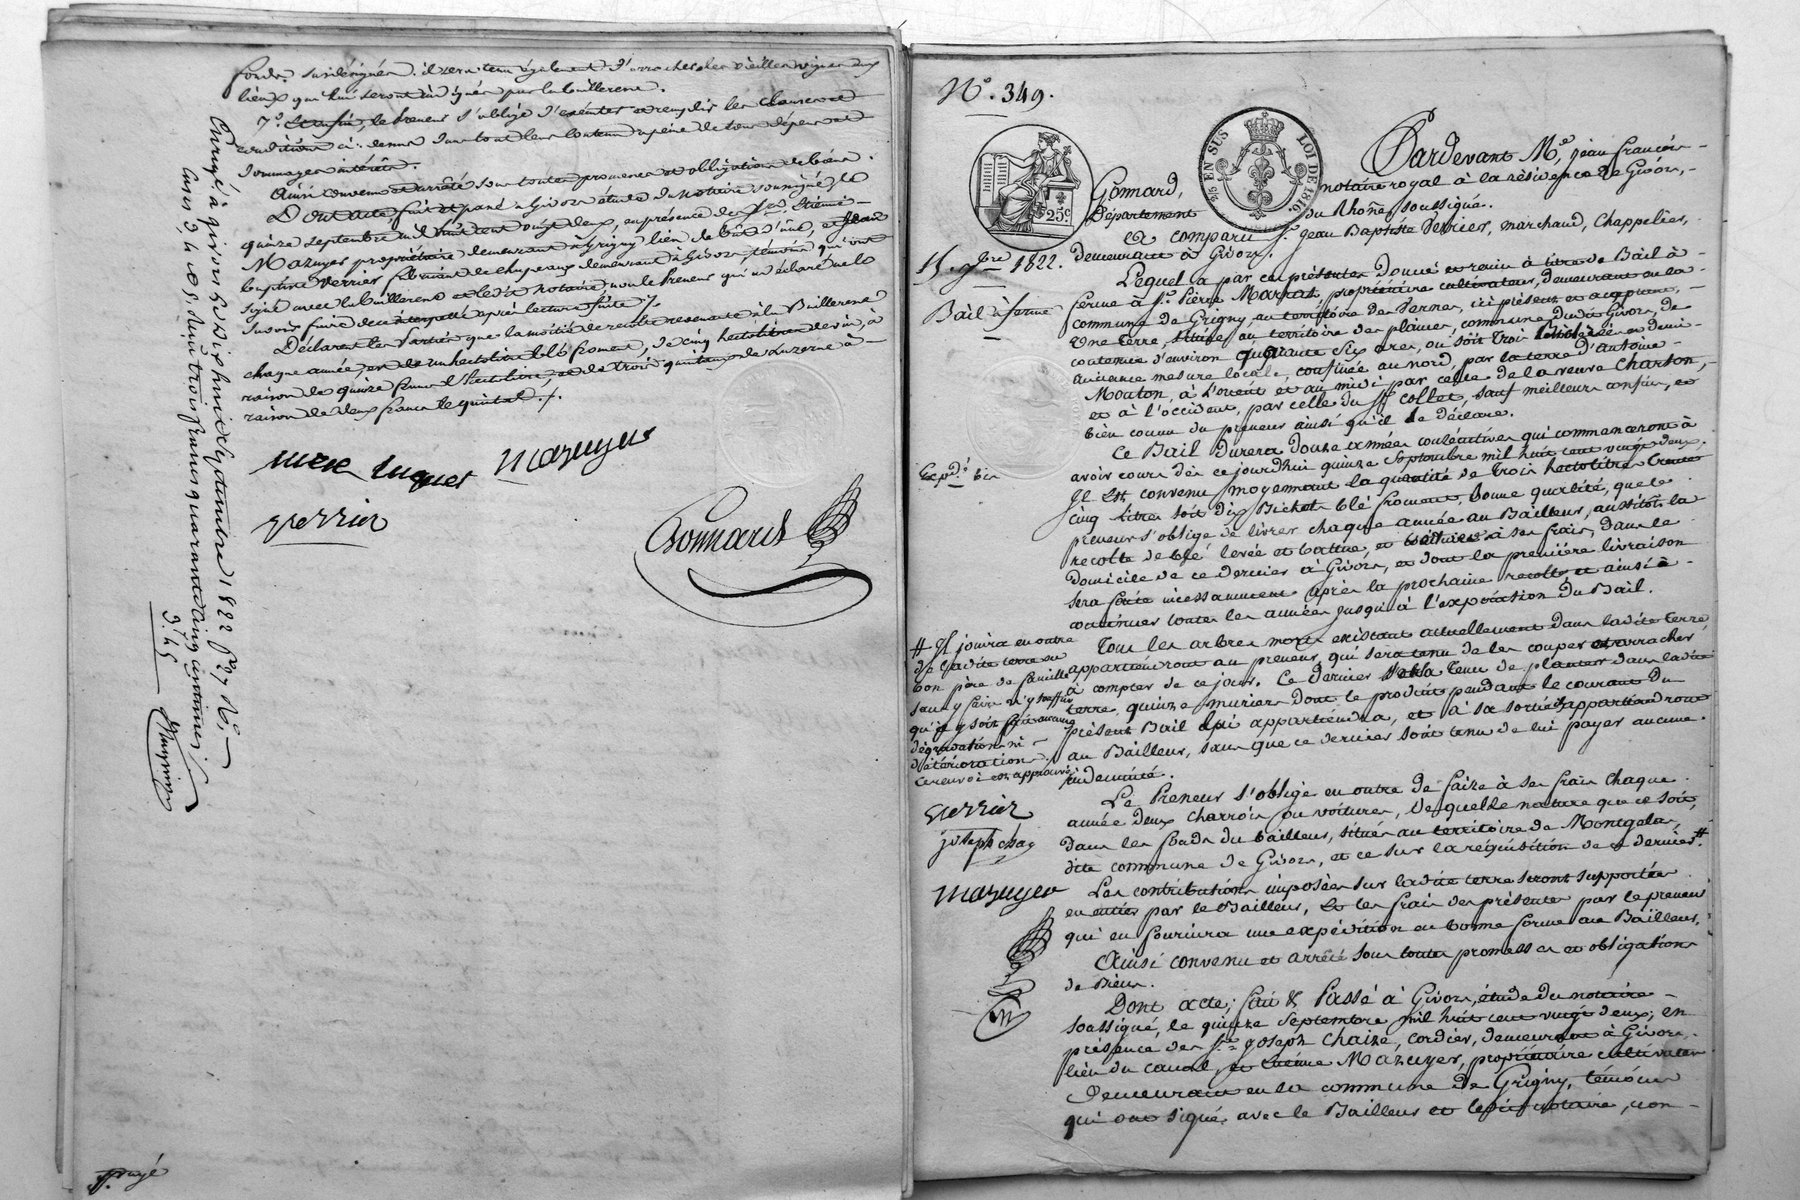 fonds susdésignés. il sera tenu également d'arracher les vieilles vignes aux
lieux qui lui seront indiqués par la bailleresse.
7º. Et enfin, le preneur s'oblige d'exécuter et remplir les clauses et
conditions ci-dessus dans tout leur contenu à peine de tous dépens et
dommages intérêts.
Ainsi convenu et arrêté sous toutes promesses et obligations de biens.
Dont acte, fait et passé à Givors étude du notaire soussigné, le
quinze septembre mil huit cent vingt deux, en présence des Srs. Etienne
Mazuyer propriétaire demeurant à Grigny lieu de , et Jean
baptiste Verrier fabricant de chapeaux demeurant à Givors, témoins qui ont
signé avec la bailleresse et ledit notaire, non le preneur qui a déclaré ne le
savoir faire de ce interpellé après lecture faite /.
Déclarent les Parties que la moitié de récolte revenant à la Bailleresse
chaque année, est de un hectolitre blé froment, de cinq hectolitres de vin, à
raison de quinze francs l'hectolitre, et de trois quintaux de luzerne à
raison de deux francs le quintal ./.
Luquet Mazuyer
Verrier
Gonnard
Enregé à givors le dix huit septembre 1822 fº 7
Cases 3, 4 et 5. Reçu trois francs quarante cinq centimes
3.45
Nº. 349.
25 EN SUS LOI DE 1816.
25c
Pardevant Me. jean françois
Gonnard, notaire royal à la résidence de Givors,
Département du Rhône, soussigné.
Est comparu Sr. Jean Baptiste Verrier, marchand, Chappelier,
15. 7bre 1822. demeurant à Givors.
Lequel a par ces présentes donné et remis à titre de Bail à
Bail à ferme
ferme à Sr. Pierre Marrat, propriétaire cultivateur, demeurant en la
commune de Grigny au territoire des Pernes, ici présent et acceptant,
Une Terre, située au territoire des plaines, commune dudit Givors, de
contenue d'environ quarante six ares, ou soit trois Bicherées et demi
ancienne mesure locale, confinée au nord, par la terre d'antoine
Mouton, à l'orient et au midi par celle de la veuve Charton,
et à l'occident, par celle du Sr. Collet, sauf meilleurs confins, et
bien connu du preneur ainsi qu'il le déclare.
Ce Bail durera douze années consécutives qui commenceront à
Expd.
avoir cours dès ce jourdhui quinze Septembre mil huit cent vingt deux.
Il est convenu moyennant la quantité de trois hectolitres trente
cinq litres soit dix Bichets blé froment, bonne qualité, que le
preneur s'oblige de livrer chaque année au Bailleur, aussitôt la
récolte de blé levée et battue, et à ses frais, dans le
domicile de ce dernier à Givors, et dont la première livraison
sera faite incessamment après la prochaine recolte et ainsi à
continuer toutes les années jusqu'à l'expiration du Bail.
Tous les arbres morts existant actuellement dans ladite terre,
appartiendront au preneur, qui sera tenu de les couper et arracher
à compter de ce jour. Ce dernier sera tenu de planter dans ladite
terre quinze muriers dont le produit pendant le courant du
présent Bail lui appartiendra, et à sa sortie appartiendront
au Bailleur, sans que ce dernier soit tenu de lui payer aucune
indemnité.
# Il jouira en outre
de ladite terre en
bon père de famille
sans y faire n'y souffrir
qu'il y soit fait aucune
dégradation ni
détérioration.
ce renvoi est approuvé
Verrier
joseph chaz
Mazuyer
Le Preneur s'oblige en outre de faire à ses frais chaque
année deux charrois ou voitures, de quelle nature que ce soit,
dans les fonds du bailleur, situés au territoire de Montgelas,
dite commune de Givors, et ce sur la réquisition de ce dernier. #
Les contributions imposées sur ladite terre seront supportées
en entier par le Bailleur, Et les frais des présentes par le preneur
qui en fournira une expédition en bonne forme au Bailleur.
Ainsi convenu et arrêté sous toutes promesses et obligations
de Biens.
Dont acte; Fait & Passé à Givors, étude du notaire
soussigné, le quinze Septembre mil huit cent vingt deux; en
présence des Srs. Joseph Chaize, cordier, demeurant à Givors,
lieu du canal, et Etienne Mazuyer, propriétaire cultivateur
demeurant en la commune de Grigny, témoins
qui ont signé avec le Bailleur et ledit notaire, non